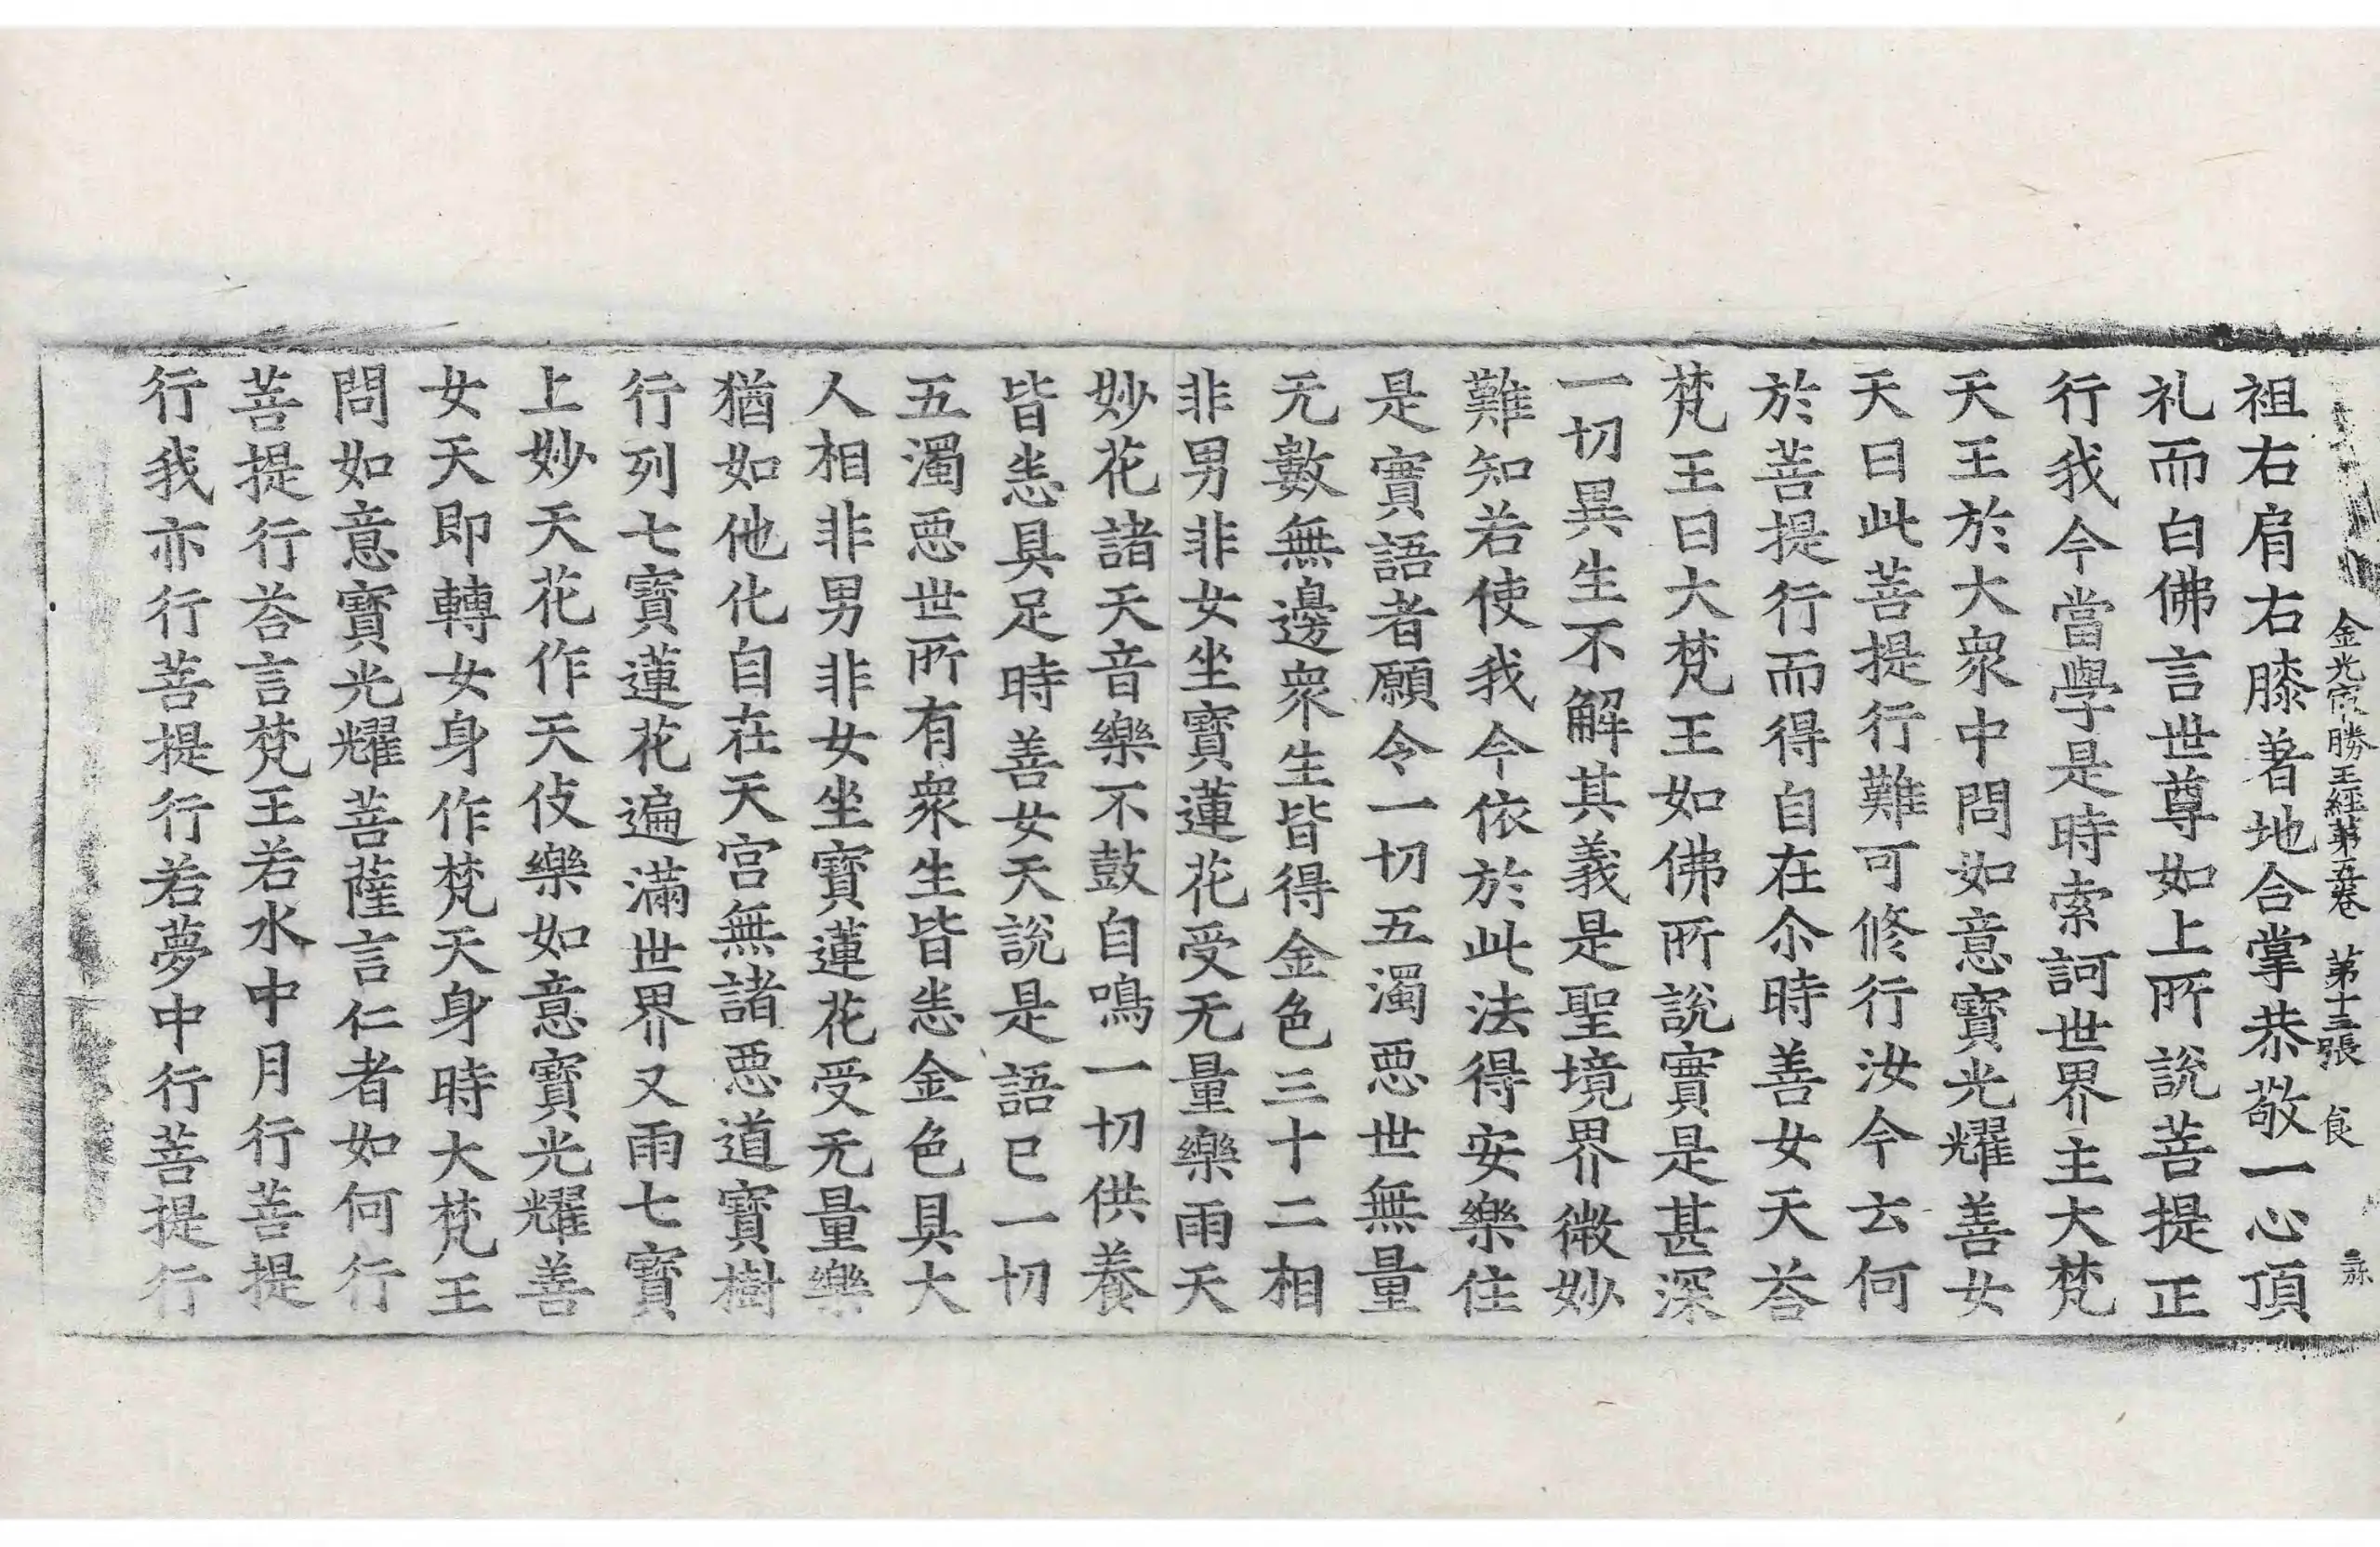 金光㝡勝王經第五卷 第十三張 食
祖右肩右膝著地合掌恭敬一心頂
礼而白佛言世尊如上所說菩提正
行我今當學是時索訶世界主大梵
天王於大衆中問如意寶光耀善女
天曰此菩提行難可修行汝今云何
於菩提行而得自在尒時善女天荅
梵王曰大梵王如佛所說實是甚深
一切異生不解其義是聖境界微妙
難知若使我今依於此法得安樂住
是實語者願令一切五濁惡世無量
无數無邊衆生皆得金色三十二相
非男非女坐寶蓮花受无量樂雨天
妙花諸天音樂不鼓自鳴一切供養
皆悉具足時善女天說是語已一切
五濁惡世所有衆生皆悉金色具大
人相非男非女坐寶蓮花受无量樂
猶如他化自在天宮無諸惡道寶樹
行列七寶蓮花遍滿世界又雨七寶
上妙天花作天伎樂如意寶光耀善
女天即轉女身作梵天身時大梵王
問如意寶光耀菩薩言仁者如何行
菩提行荅言梵王若水中月行菩提
行我亦行菩提行若夢中行菩提行